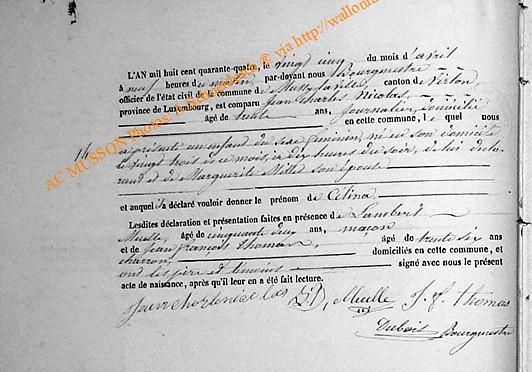 L'AN mil huit cent quarante-quatre, le vingt cinq du mois d'avril
à neuf heures du matin, par-devant nous Bourgmestre
officier de l'état civil de la commune de Mussy-la-ville, canton de Virton
province de Luxembourg, est comparu Jean Charles Nicolas
âgé de trente ans, journalier, domicilié
en cette commune, le quel nous
14
a présenté un enfant du sexe féminin, né en son domicile
le vingt trois de ce mois, à dix heures du soir, de lui décla-
rant et de Marguerite son épouse
et auquel il a déclaré vouloir donner le prénom de Celina,
Lesdites déclaration et présentation faites en présence de Lambert
âgé de cinquante deux ans, maçon
et de Jean françois thomas, âgé de trente six ans
charron, domiciliés en cette commune, et
ont les père et témoins signé avec nous le présent
acte de naissance, après qu'il leur en a été fait lecture.
J. f. thomas
Dubois Bourgmestre
AC MUSSON Photos: via http://wallonia